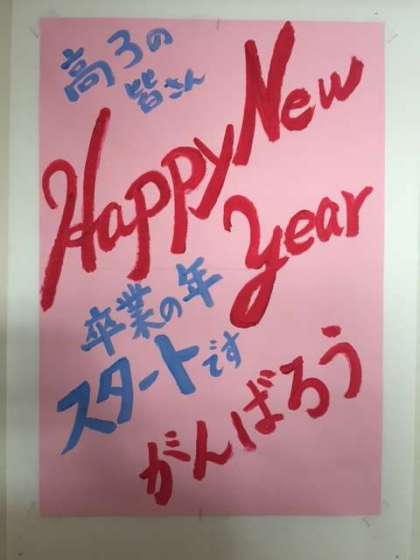 高3の
皆さん
Happy New
Year
卒業の年
スタートです
がんばろう